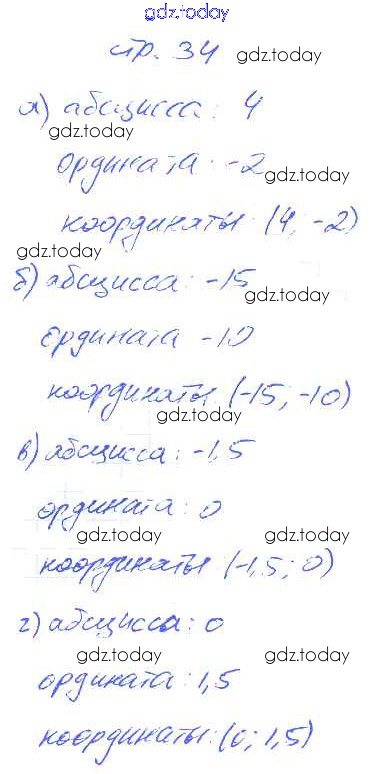 gdz.today
стр. 34 gdz.today
а) абсцисса: 4
gdz.today
ордината: -2 gdz.today
координаты: (4; -2)
gdz.today
б) абсцисса: -15
gdz.today
ордината -10
координаты: (-15; -10)
gdz.today
в) абсцисса: -1,5
ордината: 0
gdz.today gdz.today
координаты: (-1,5; 0)
г) абсцисса: 0
gdz.today gdz.today
ордината: 1,5
gdz.today gdz.today
координаты: (0; 1,5)
gdz.today